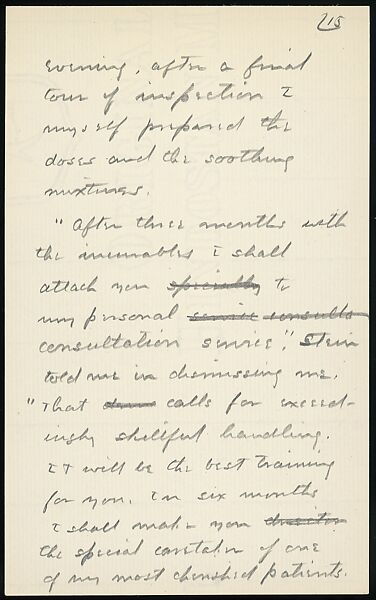 15
evening, after a final
tour of inspection I
myself prepared the
doses and the soothing
mixtures.
"After three months with
the incurables I shall
attach you specially to
my personal service consulta
consultation service", Stein
told me in dismissing me.
"That calls for exceed-
ingly skillful handling.
It will be the best training
for you. In six months
I shall make you director
the special caretaker of one
of my most cherished patients.